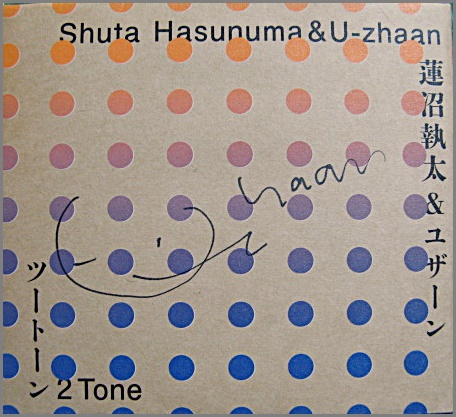 Shuta Hasunuma & U-zhaan
蓮沼執太&ユザーン
ツートーン
2 Tone